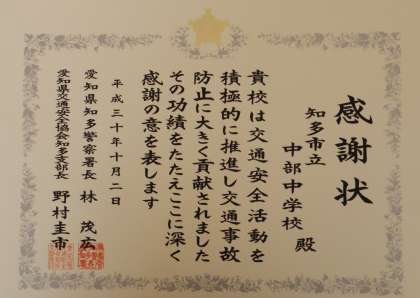 感謝状
知多市立
中部中学校 殿
貴校は交通安全活動を
積極的に推進し交通事故
防止に大きく貢献されました
その功績をたたえここに深く
感謝の意を表します
平成三十年十月二日
愛知県知多警察署長 林 茂広
愛知県交通安全協会知多支部長 野村圭市